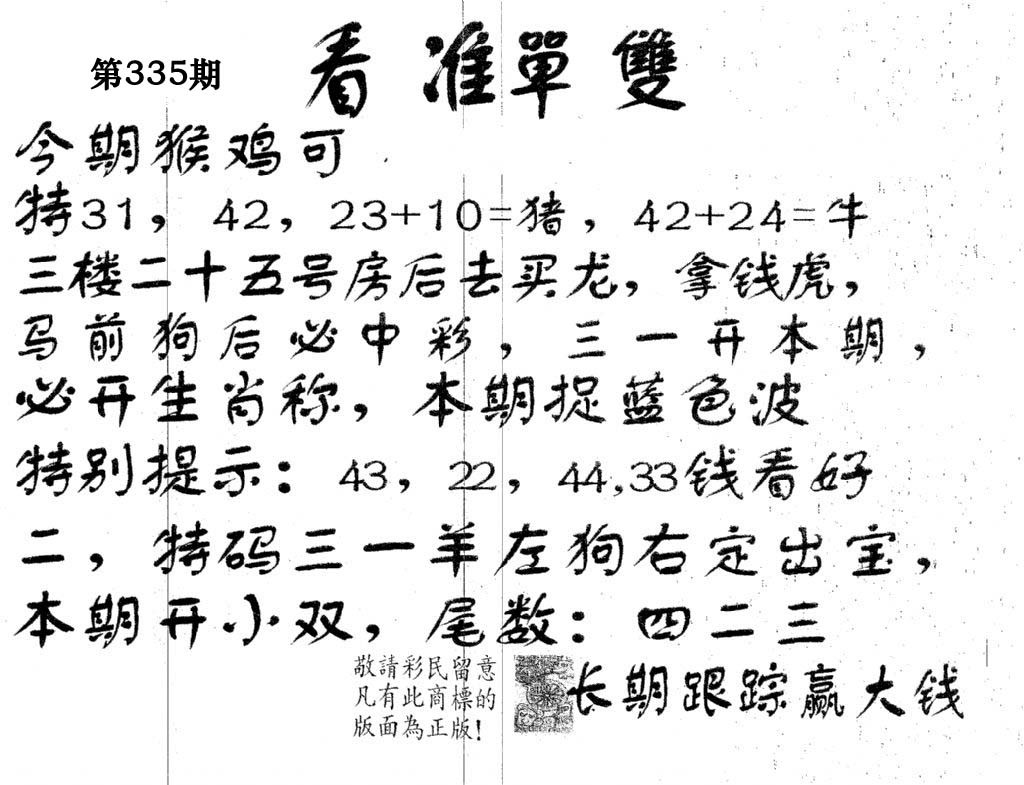 第335期
看准單雙
今期猴鸡可
特31，42，23+10=猪，42+24=牛
三楼二十五号房后去买龙，拿钱虎，
马前狗后必中彩，三一开本期，
必开生肖称，本期捉蓝色波
特别提示：43，22，44,33钱看好
二，特码三一羊左狗右定出宝，
本期开小双，尾数：四二三
敬請彩民留意
凡有此商標的
版面為正版！
长期跟踪赢大钱